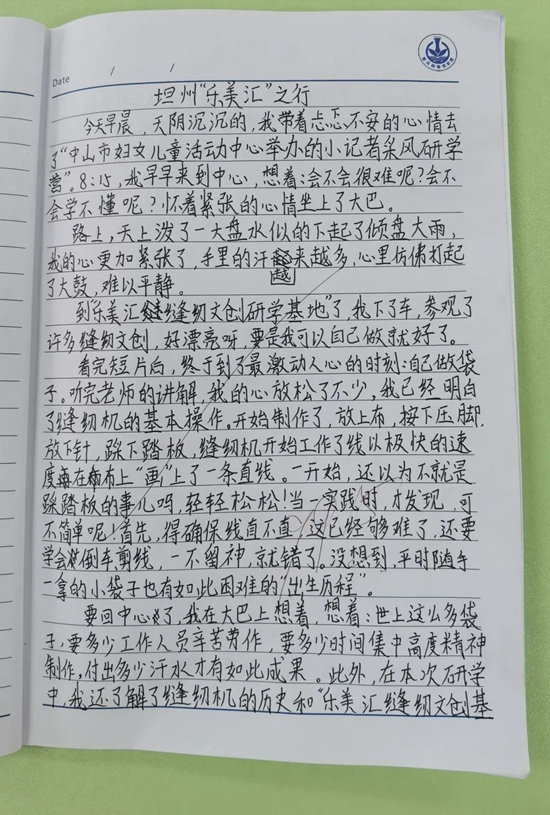 Date / /
坦州“乐美汇”之行
今天早晨，天阴沉沉的，我带着忐忑不安的心情去
了“中山市妇女儿童活动中心举办的小记者采风研学
营”。8:15，我早早来到中心，想着：会不会很难呢？会不
会学不懂呢？怀着紧张的心情坐上了大巴。
路上，天上泼了一大盘水似的下起了倾盘大雨，
我的心更加紧张了，手里的汗越来越多，心里仿佛打起
了大鼓，难以平静。
到“乐美汇缝纫文创研学基地”了，我下了车，参观了
许多缝纫文创，好漂亮呀，要是我可以自己做就好了。
看完短片后，终于到了最激动人心的时刻：自己做袋
子。听完老师的讲解，我的心放松了不少，我已经明白
了缝纫机的基本操作。开始制作了，放上布，按下压脚，
放下针，踩下踏板，缝纫机开始工作了线以极快的速
度在布上“画”上了一条直线。一开始，还以为不就是
踩踏板的事儿吗，轻轻松松！当一实践时，才发现，可
不简单呢！首先，得确保线直不直，这已经够难了，还要
学会倒车剪线，一不留神，就错了。没想到，平时随手
一拿的小袋子也有如此困难的“出生历程”。
要回中心了，我在大巴上想着，想着：世上这么多袋
子，要多少工作人员辛苦劳作，要多少时间集中高度精神
制作，付出多少汗水才有如此成果。此外，在本次研学
中，我还了解了缝纫机的历史和“乐美汇缝纫文创基